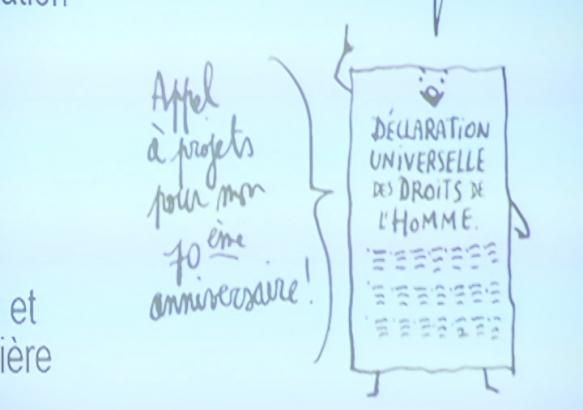 ation
Appel
à projets
pour mon
70 ème
anniversaire!
DÉCLARATION
UNIVERSELLE
DES DROITS DE
L'HOMME.
et
ière